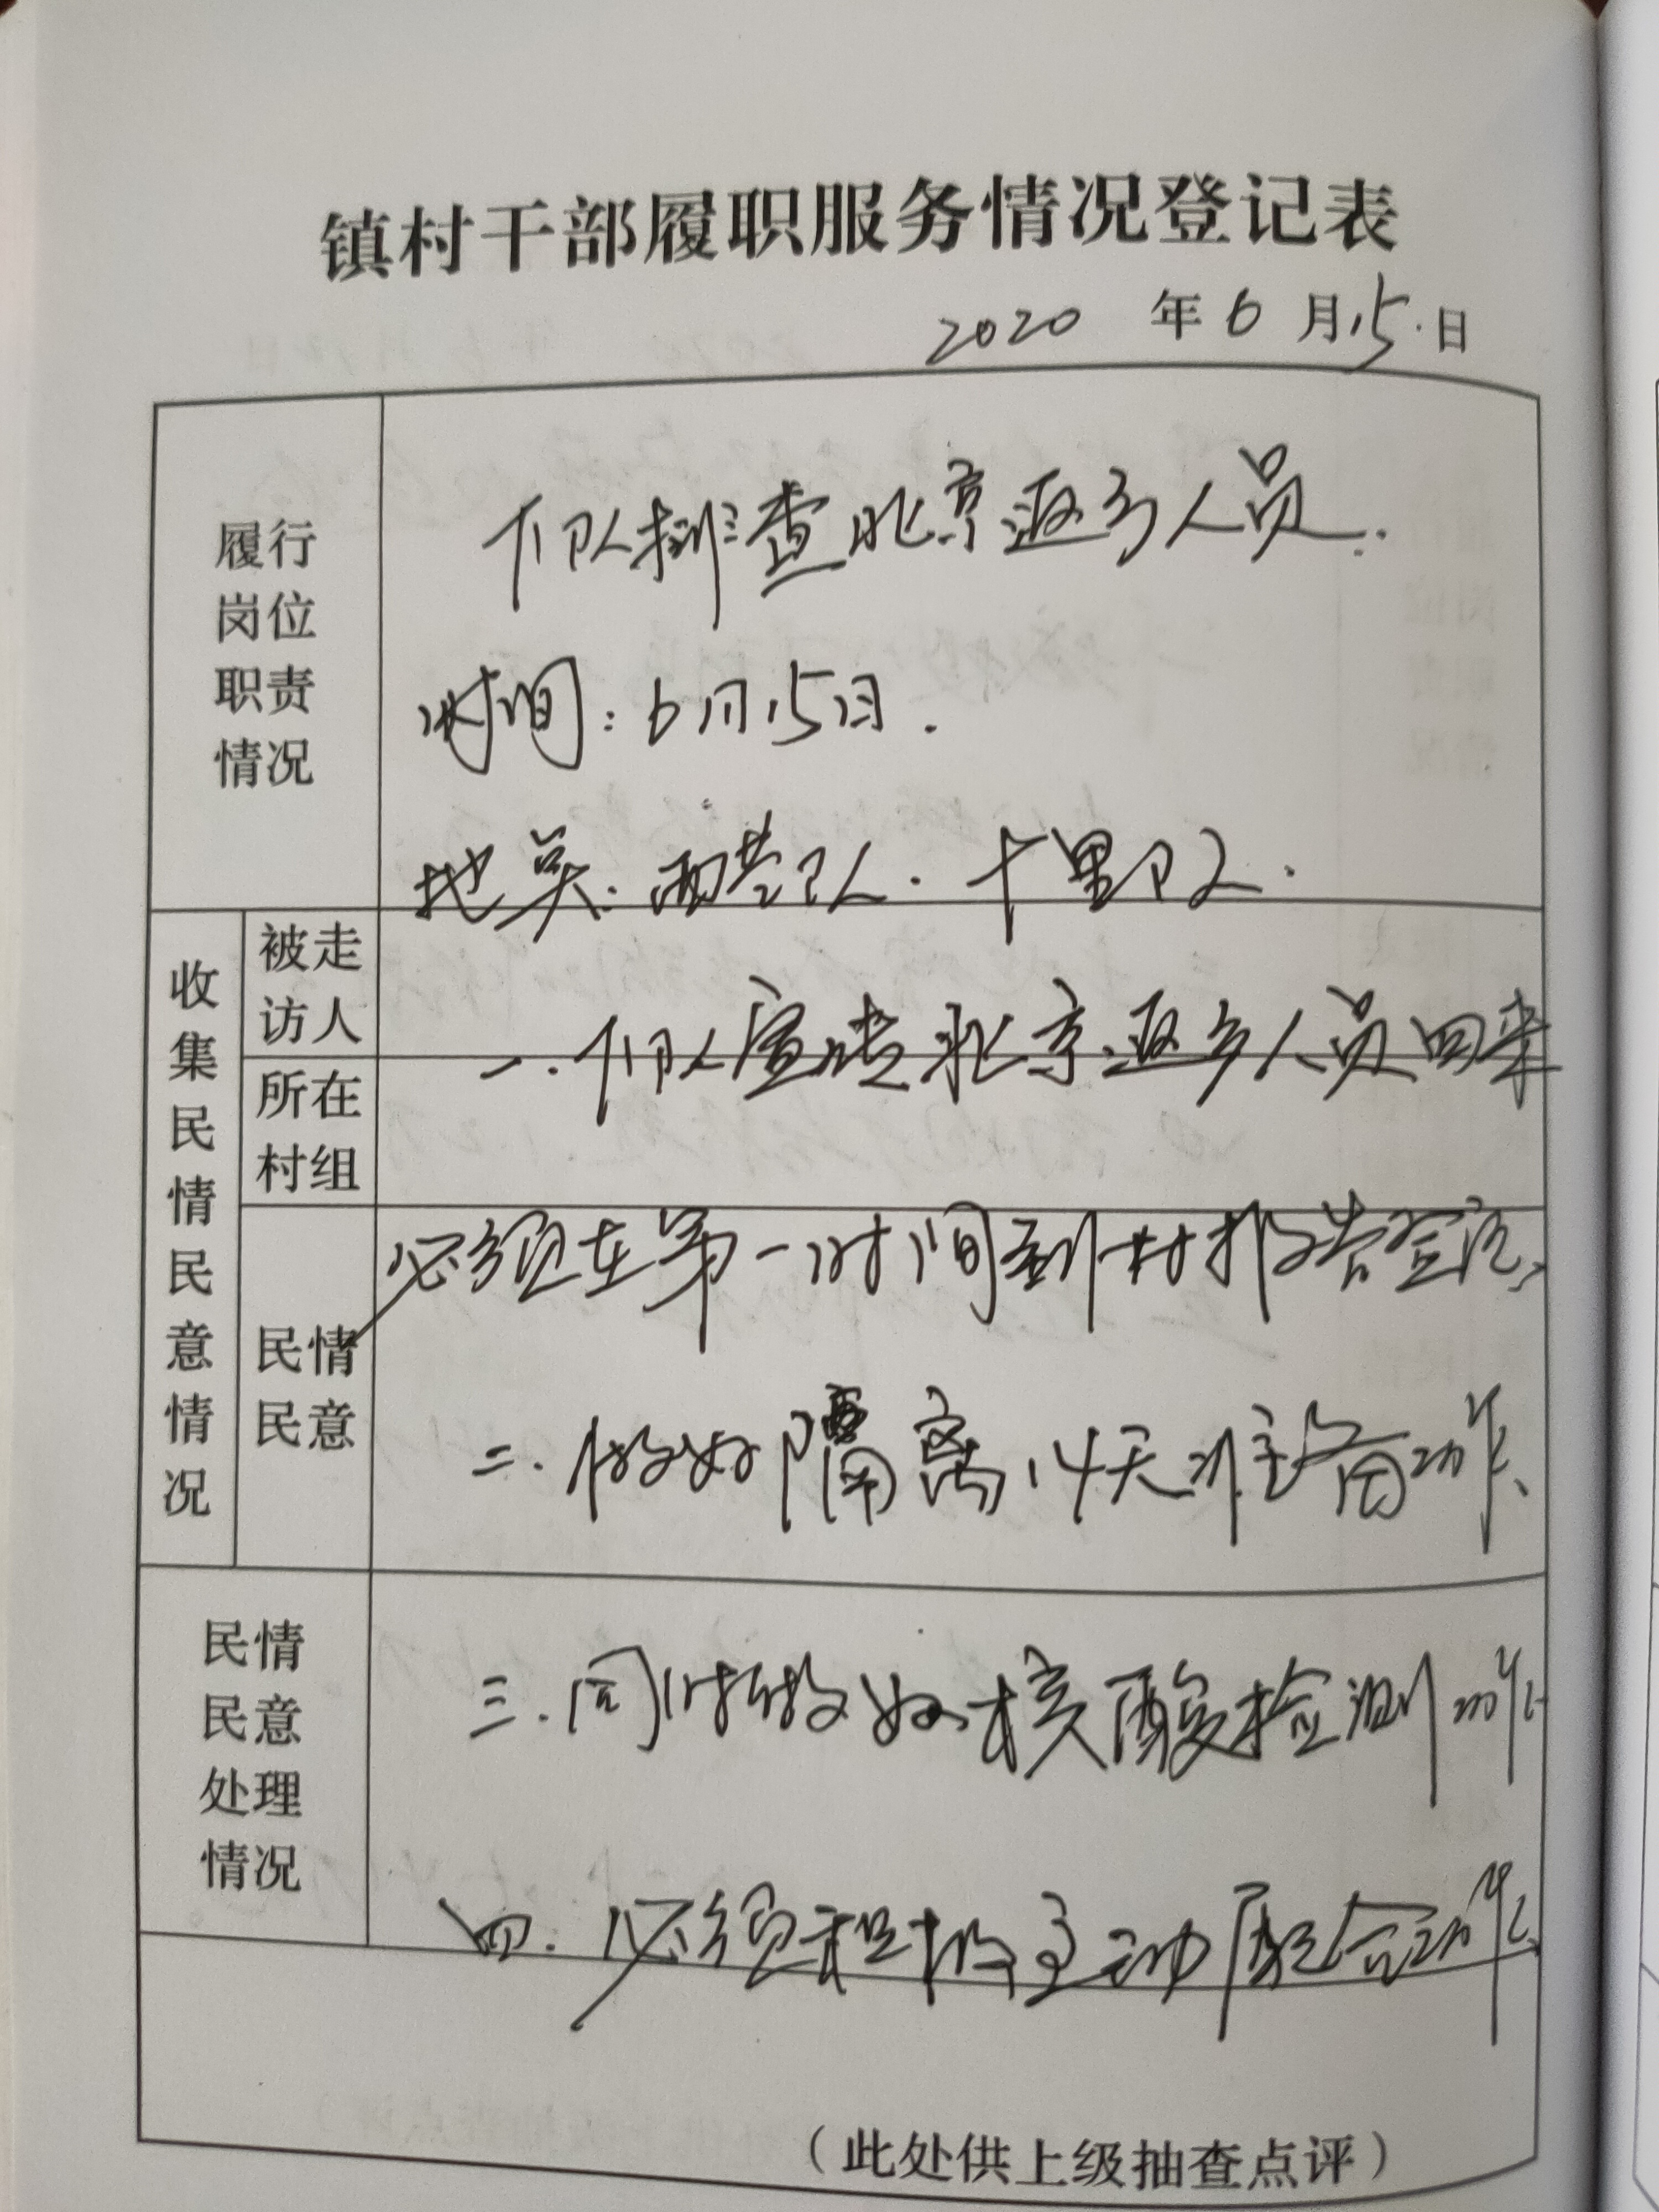 镇村干部履职服务情况登记表
2020 年 6 月 15 日
履行
岗位
职责
情况
下队排查北京返乡人员.
时间:6月15日.
地点:两 队.
收集民情民意情况
被走
访人
所在
村组
民情
民意
一.下队宣传北京返乡人员回来
必须在第一时间到村报告登记
二.做好隔离14天准备工作、
民情
民意
处理
情况
三.同时做好核酸检测工作
四.必须积极主动配合工作
(此处供上级抽查点评)